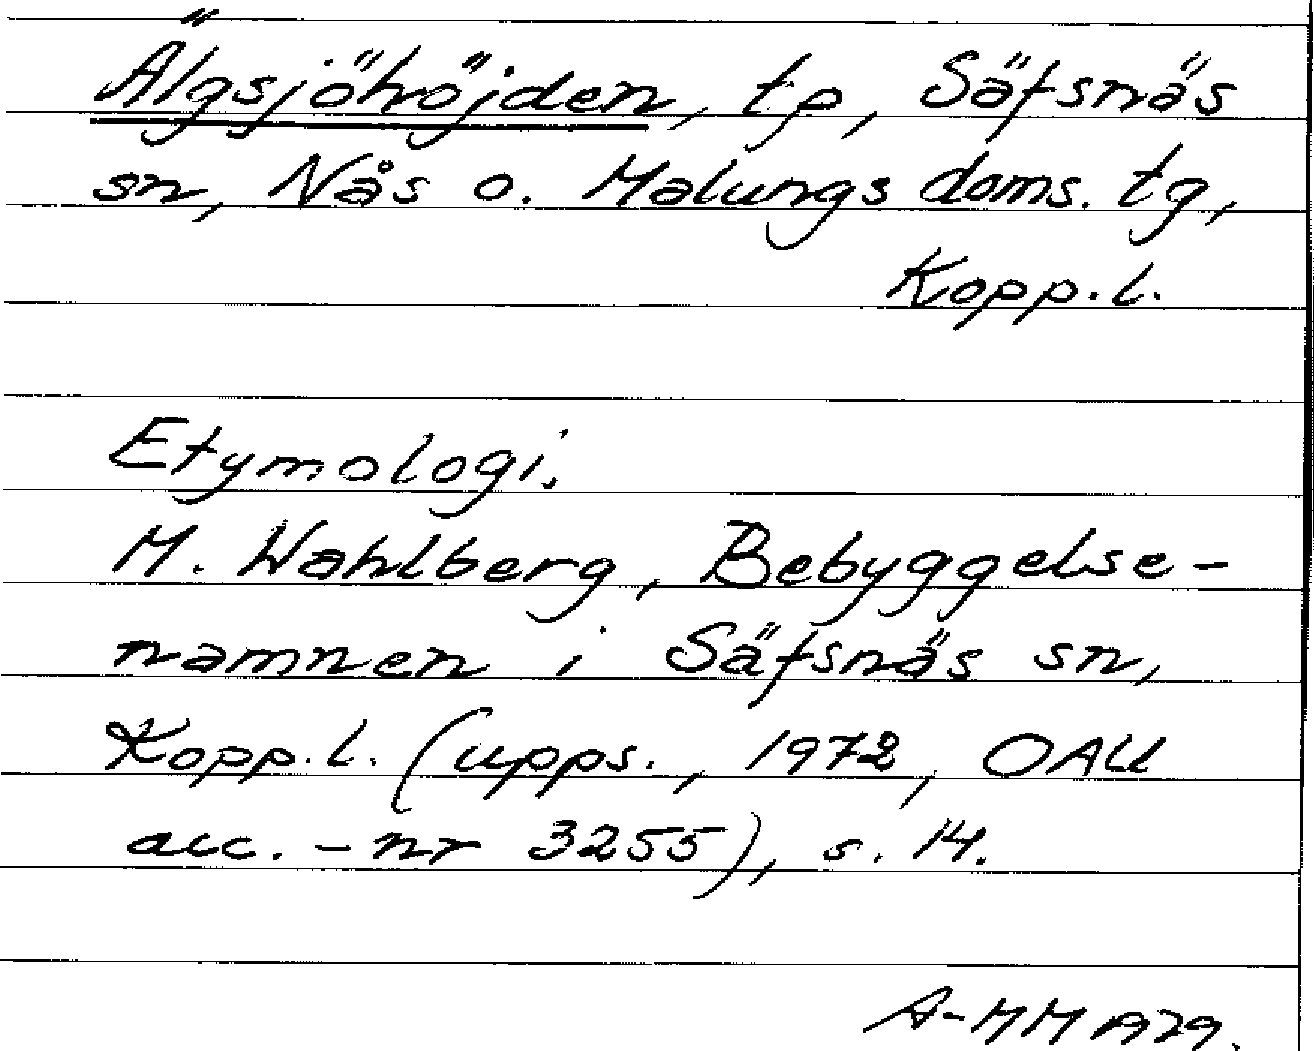 Älgsjöhöjden, tp, Säfsnäs
sn, Nås o. Malungs doms. tg,
Kopp.l.
Etymologi.
M. Wahlberg, Bebyggelse-
namnen i Säfsnäs sn,
Kopp.l. (upps., 1972, OAU
acc.-nr 3255), s. 14.
A-MM 1979.